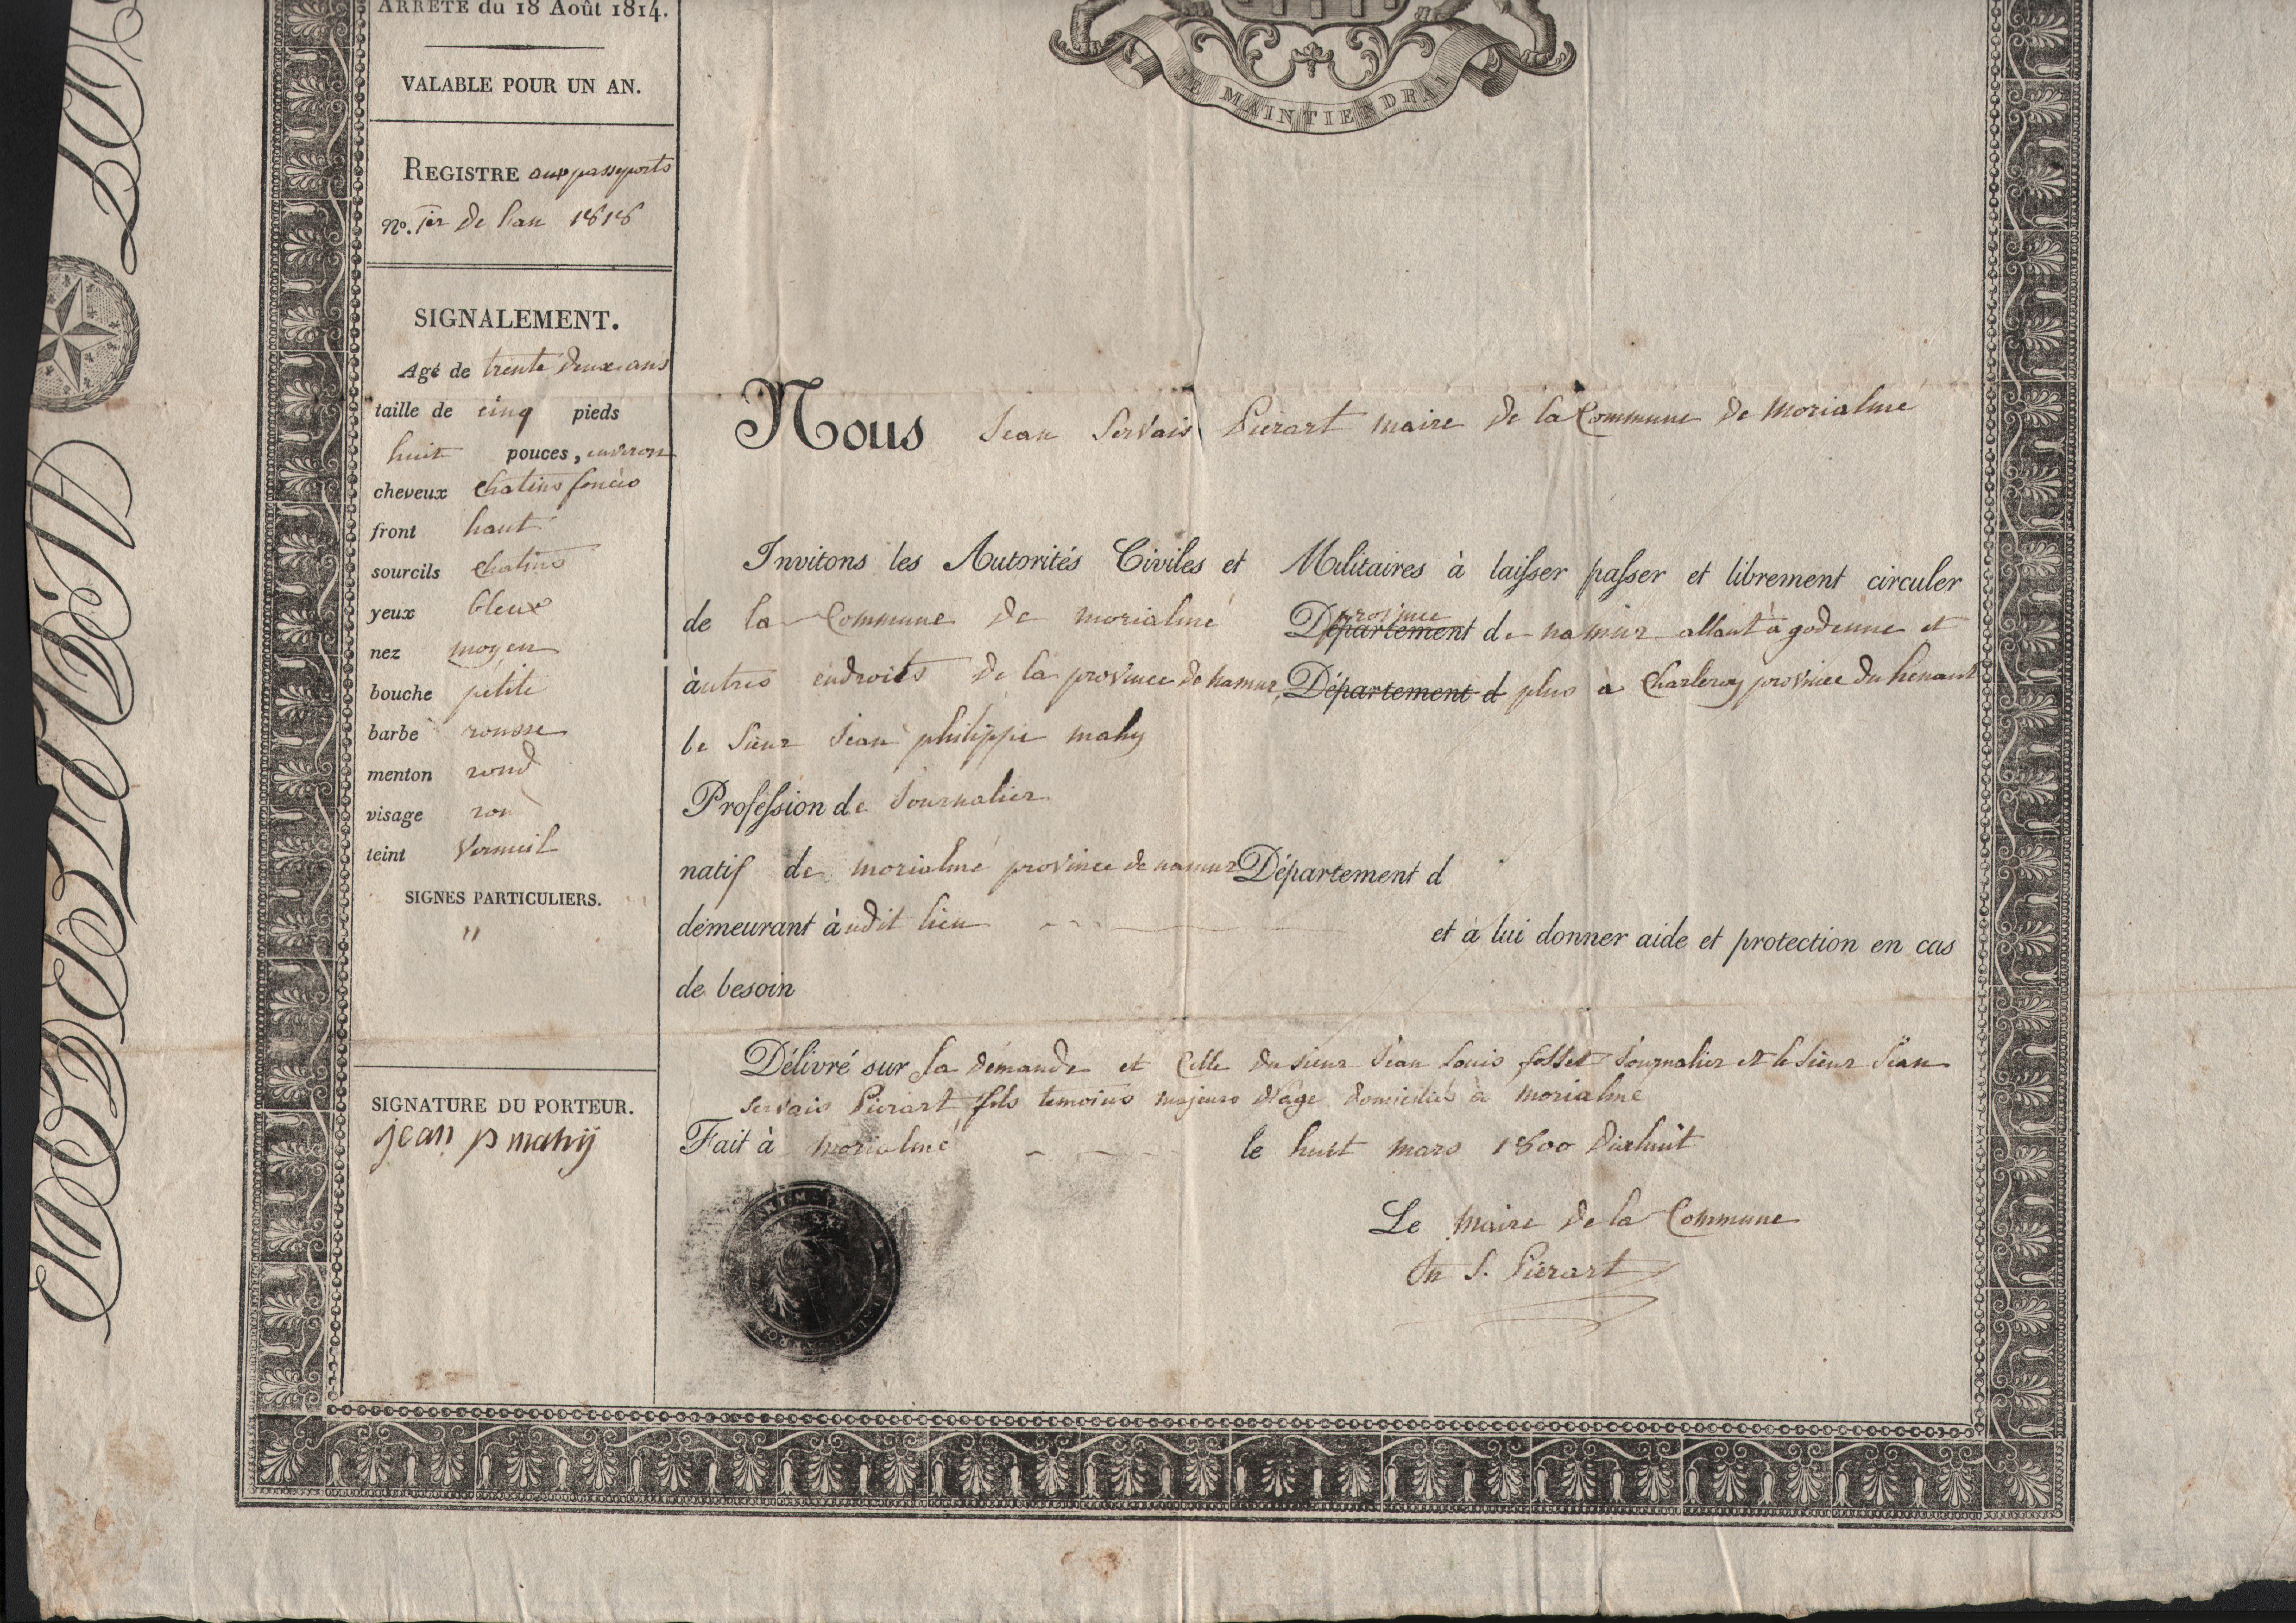 ARRÊTÉ du 18 Août 1814.
VALABLE POUR UN AN.
REGISTRE aux passeports
No. 1er de l'an 1818
SIGNALEMENT.
Agé de trente deux ans
taille de cinq pieds
huit pouces, environ
cheveux chatins foncés
front haut
sourcils chatins
yeux bleux
nez moyen
bouche petite
barbe rousse
menton rond
visage ron
teint Vermeil
SIGNES PARTICULIERS.
"
SIGNATURE DU PORTEUR.
jean p mahij
JE MAINTIENDRAI
Nous Jean Servais Piérart maire de la Commune de morialmé
Invitons les Autorités Civiles et Militaires à laisser passer et librement circuler
de la Commune de morialmé Département province de namur allant à godenne et
àutres endroits de la province de namur, Département d plus à Charleroy province du henaut
le Sieur Jean philippe mahy
Profession de Journalier
natif de morialmé province de namur Département d
demeurant àudit lieu et à lui donner aide et protection en cas
de besoin
Délivré sur sa demande et celle du sieur Jean Louis fosset Journalier et le sieur Jean
Servais Piérart fils temoins majeurs d'age domiciliés à morialmé
Fait à morialmé le huit mars 1800 dixhuit
Le maire de la Commune
Jn S. Piérart